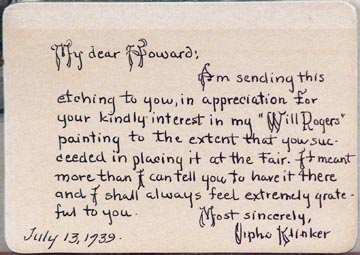 My dear Howard:
I'm sending this
etching to you, in appreciation for
your kindly interest in my "Will Rogers"
painting to the extent that you suc-
ceeded in placing it at the Fair. It meant
more than I can tell you to have it there
and I shall always feel extremely grate-
ful to you. Most sincerely,
July 13, 1939. Orpha Klinker